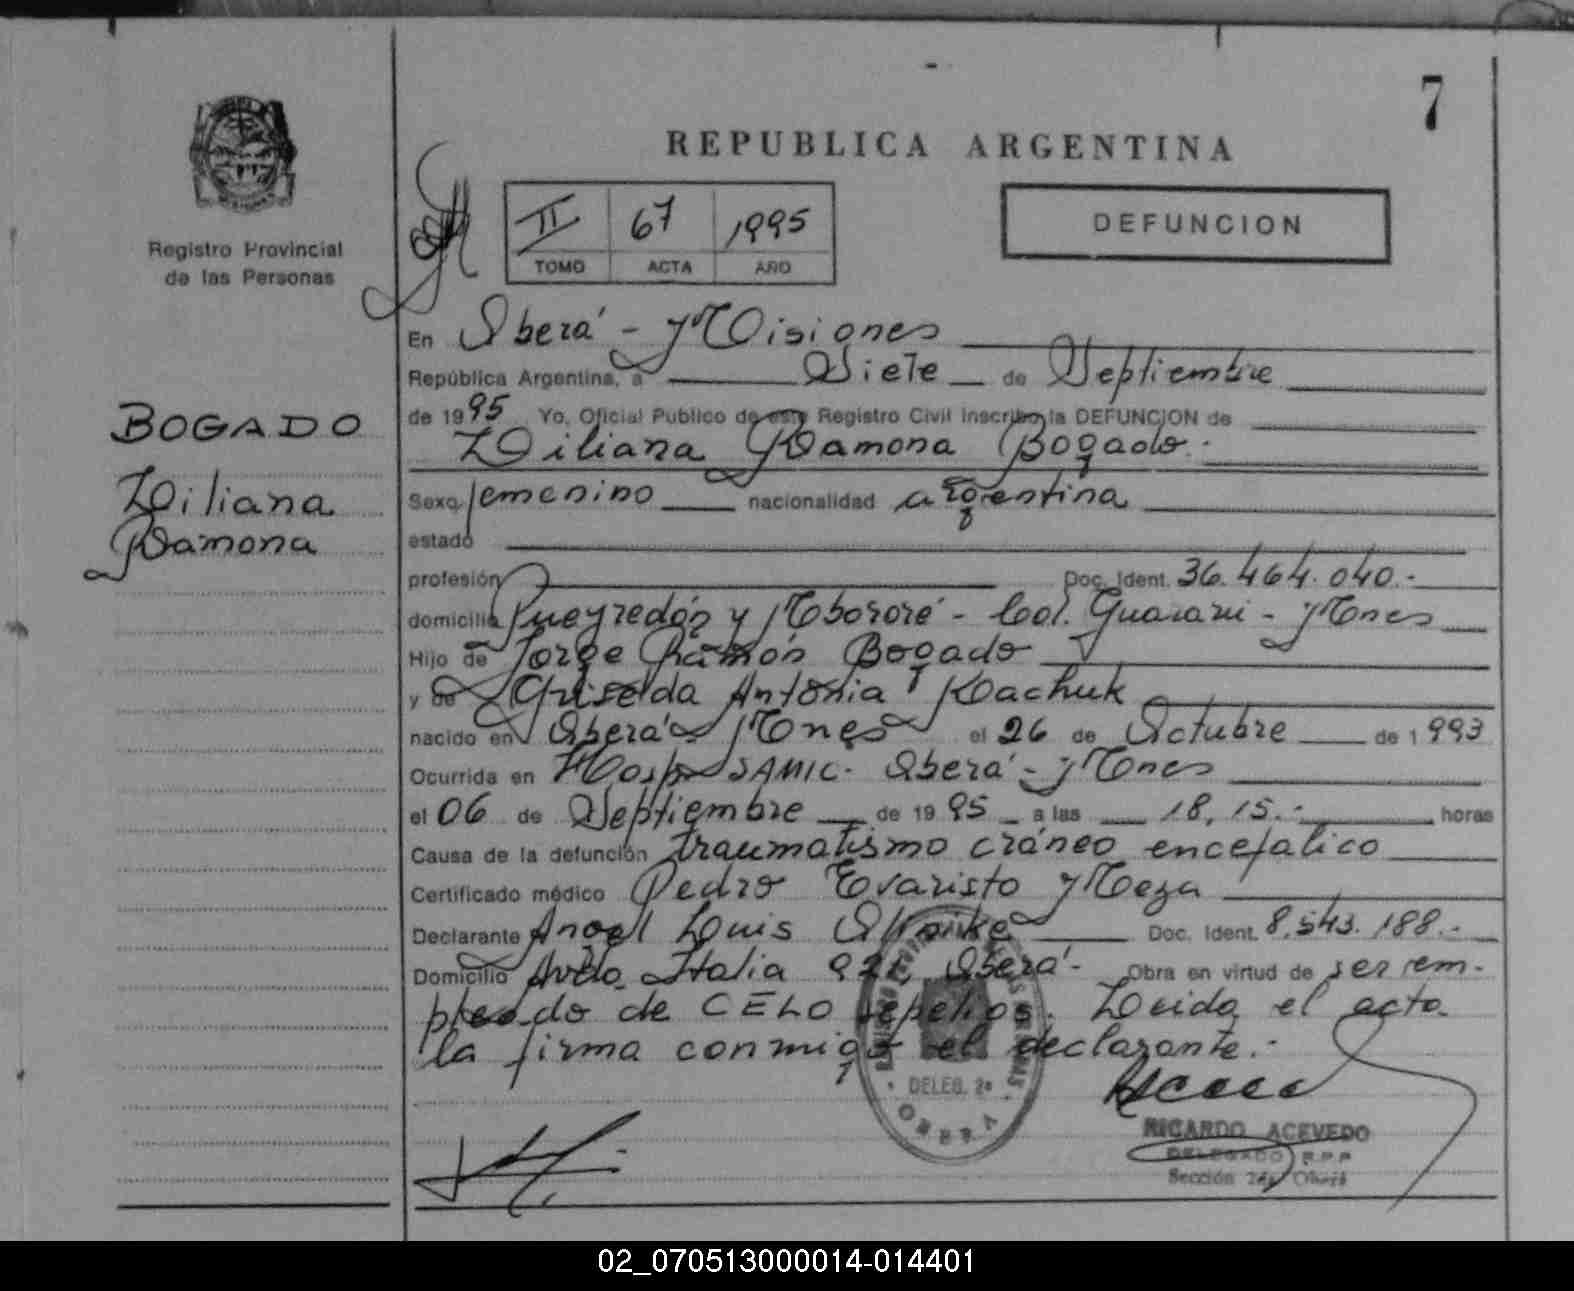 7
REPUBLICA ARGENTINA
Registro Provincial
de las Personas
II 67 1995
TOMO ACTA AÑO
DEFUNCION
BOGADO
Liliana
Ramona
En Oberá - Misiones
República Argentina, a Siete de Septiembre
de 1995 Yo, Oficial Publico de este Registro Civil inscribo la DEFUNCION de
Liliana Ramona Bogado.
Sexo femenino nacionalidad argentina
estado
profesión Doc. Ident. 36.464.040.-
domicilio Pueyredón y Mbororé - Col. Guaraní - Mnes
Hijo de Jorge Ramón Bogado
y de Griselda Antonia Kachuk
nacido en Oberá Mnes el 26 de Octubre de 1993
Ocurrida en Hosp. SAMIC. Oberá - Mnes
el 06 de Septiembre de 1995 a las 18,15.- horas
Causa de la defunción traumatismo cráneo encefalico
Certificado médico Pedro Evaristo Meza
Declarante Angel Luis Doc. Ident. 8.543.188.-
Domicilio Avda. Italia Oberá - Obra en virtud de ser em-
pleado de CELO sepelios. Leida el acta
la firma conmigo el declarante.-
DELEG. 2a
OBERA
RICARDO ACEVEDO
DELEGADO R.P.P
Sección 2da Oberá
02_070513000014-014401